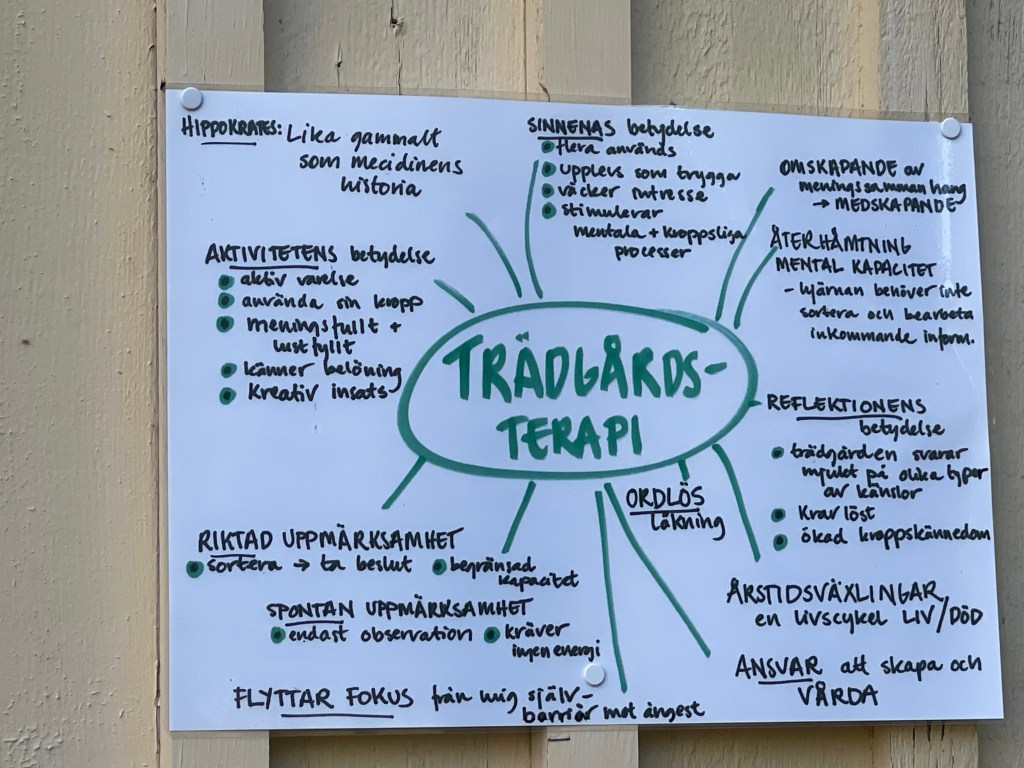 HIPPOKRATES: Lika gammalt
som mecidinens
historia
SINNENAS betydelse
flera används
upplevs som trygga
väcker intresse
stimulerar
mentala + kroppsliga
processer
OMSKAPANDE av
meningssammanhang
→ MEDSKAPANDE
ÅTERHÄMTNING
MENTAL KAPACITET
- hjärnan behöver inte
sortera och bearbeta
inkommande inform.
AKTIVITETENS betydelse
aktiv varelse
använda sin kropp
meningsfullt +
lustfyllt
känner belöning
kreativ insats
TRÄDGÅRDS-
TERAPI
REFLEKTIONENS
betydelse
trädgården svarar
mjukt på olika typer
av känslor
Kravlöst
ökad kroppskännedom
ORDLÖS
läkning
RIKTAD UPPMÄRKSAMHET
sortera → ta beslut
begränsad
kapacitet
SPONTAN UPPMÄRKSAMHET
endast observation
kräver
ingen energi
ÅRSTIDSVÄXLINGAR,
en livscykel LIV/DÖD
ANSVAR att skapa och
VÅRDA
FLYTTAR FOKUS från mig själv -
barriär mot ångest